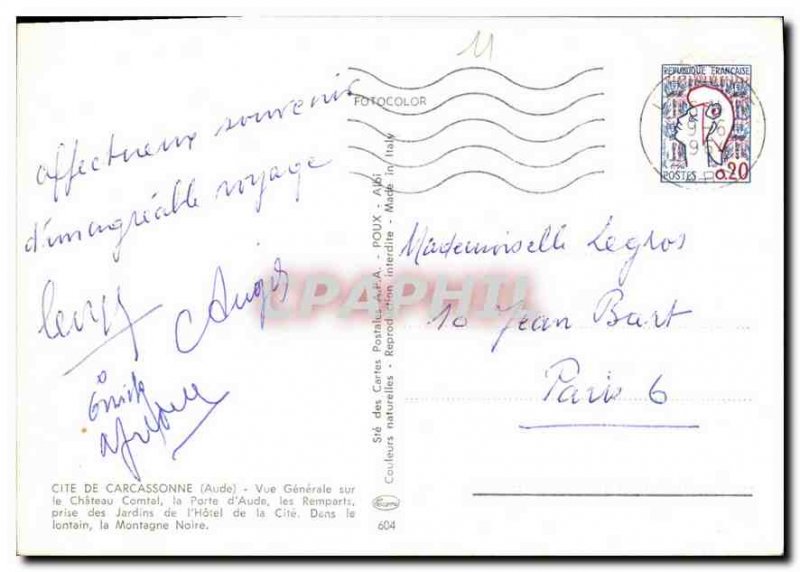 11
FOTOCOLOR
REPUBLIQUE FRANCAISE
9-6
POSTES 0.20
affectueux souvenir
d'un agréable voyage
Mademoiselle Legros
10 Jean Bart
Paris 6
CPAPHIL
Sté des Cartes Postales A.P.A. - POUX - Albi
Couleurs naturelles - Reproduction interdite - Made in Italy
CITE DE CARCASSONNE (Aude) - Vue Générale sur
le Château Comtal, la Porte d'Aude, les Remparts,
prise des Jardins de l'Hôtel de la Cité. Dans le
lontain, la Montagne Noire.
604